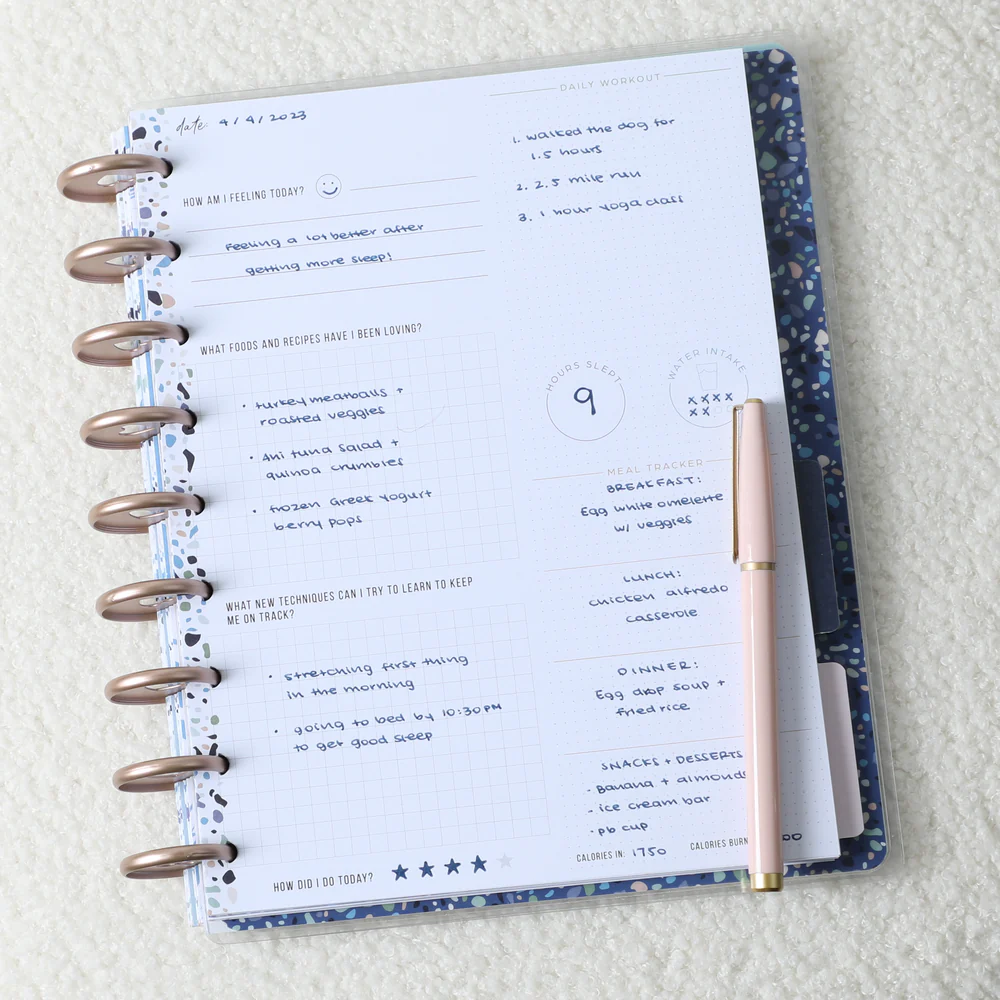 date: 4/4/2023
HOW AM I FEELING TODAY?
Feeling a lot better after
getting more sleep!
WHAT FOODS AND RECIPES HAVE I BEEN LOVING?
• turkey meatballs +
roasted veggies
• Ahi tuna salad +
quinoa crumbles
• frozen Greek yogurt
berry pops
WHAT NEW TECHNIQUES CAN I TRY TO LEARN TO KEEP
ME ON TRACK?
• stretching first thing
in the morning
• going to bed by 10:30 PM
to get good sleep
HOW DID I DO TODAY?
DAILY WORKOUT
1. walked the dog for
1.5 hours
2. 2.5 mile run
3. 1 hour yoga class
HOURS SLEPT
9
WATER INTAKE
XXXX
XX
MEAL TRACKER
BREAKFAST:
Egg white omelette
w/ veggies
LUNCH:
chicken alfredo
casserole
DINNER:
Egg drop soup +
fried rice
SNACKS + DESSERTS
- Banana + almonds
- ice cream bar
- pb cup
CALORIES IN: 1750
CALORIES BURN